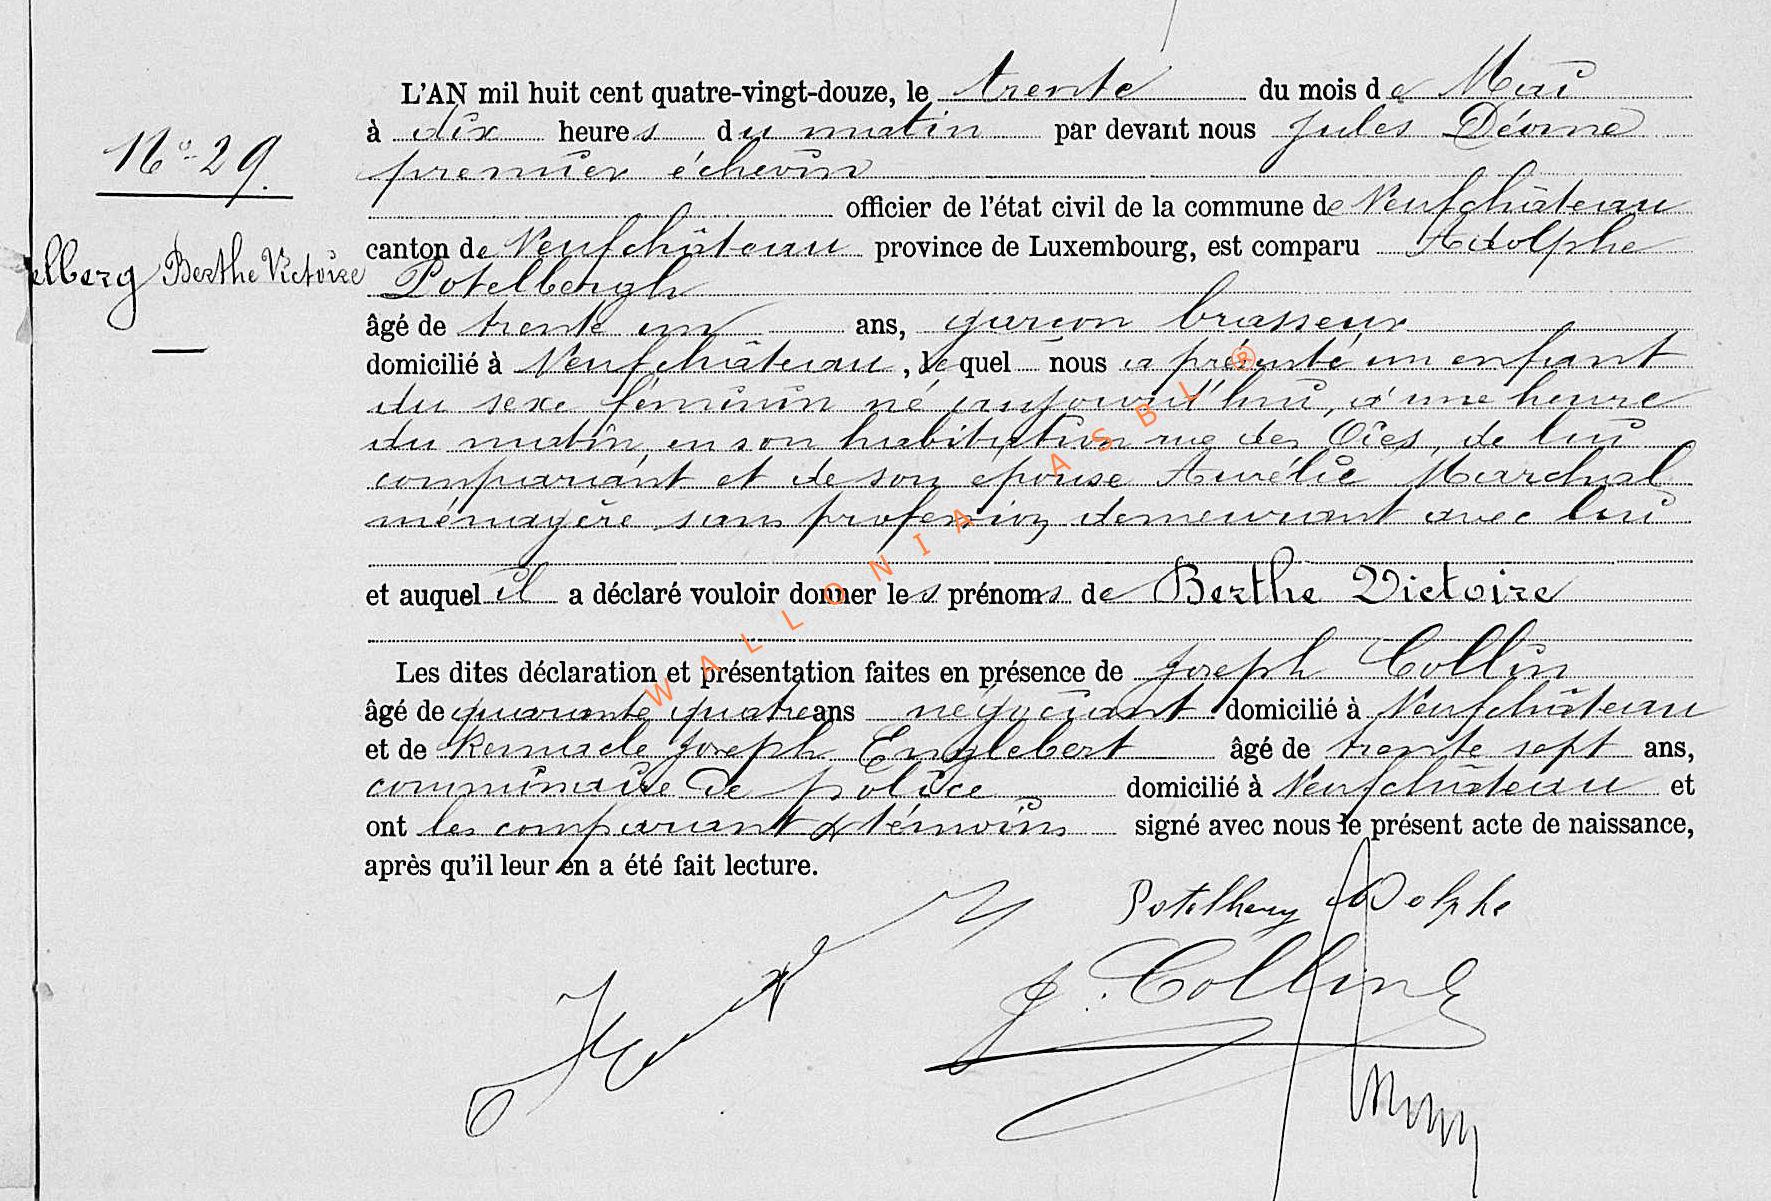 N° 29.
elberg Berthe Victoire
L'AN mil huit cent quatre-vingt-douze, le trente du mois de Mai
à dix heures du matin par devant nous Jules Déome
premier échevin
officier de l'état civil de la commune de Neufchâteau
canton de Neufchâteau province de Luxembourg, est comparu Adolphe
Potelbergh
âgé de trente un ans, garçon brasseur
domicilié à Neufchâteau, lequel nous a présenté un enfant
du sexe féminin né aujourd'hui, à une heure
du matin, en son habitation rue des Oies, de lui
comparant et de son épouse Aurélie Marchal
ménagère sans profession, demeurant avec lui
et auquel il a déclaré vouloir donner les prénoms de Berthe Victoire
Les dites déclaration et présentation faites en présence de Joseph Collin
âgé de quarante quatre ans négociant domicilié à Neufchâteau
et de Joseph Englebert âgé de trente sept ans,
commissaire de police domicilié à Neufchâteau et
ont les comparant & témoins signé avec nous le présent acte de naissance,
après qu'il leur en a été fait lecture.
Potelberg Adolphe
J. Collin
WALLONIA ASBL ®